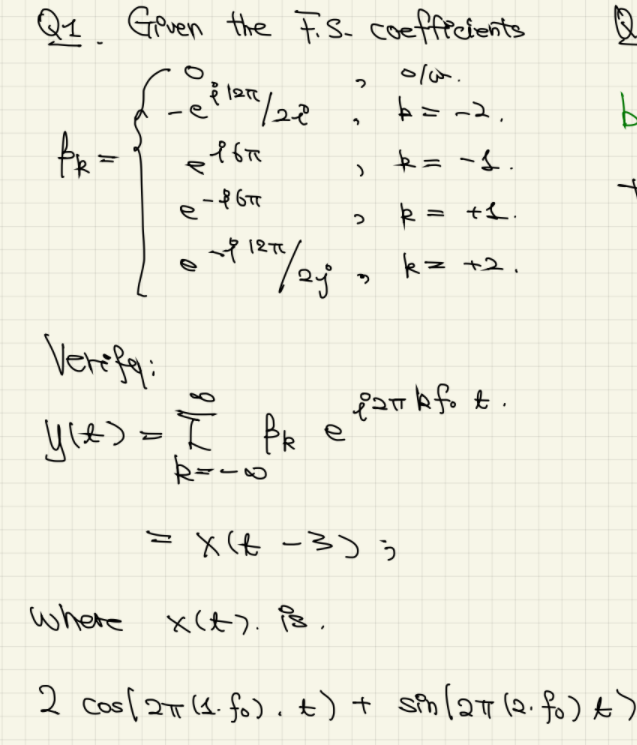 Q1. Given the F.S. coefficients
Q
βk = { 0 , o/w.
-e^{j12π}/2j , k = -2.
e^{j6π} , k = -1.
e^{-j6π} , k = +1.
e^{-j12π}/2j , k = +2.
b
+
Verify:
y(t) = Σ_{k=-∞}^{∞} βk e^{j2π k f₀ t}.
= x(t - 3) ;
where x(t). is.
2 cos(2π(1.f₀).t) + sin(2π(2.f₀)t)